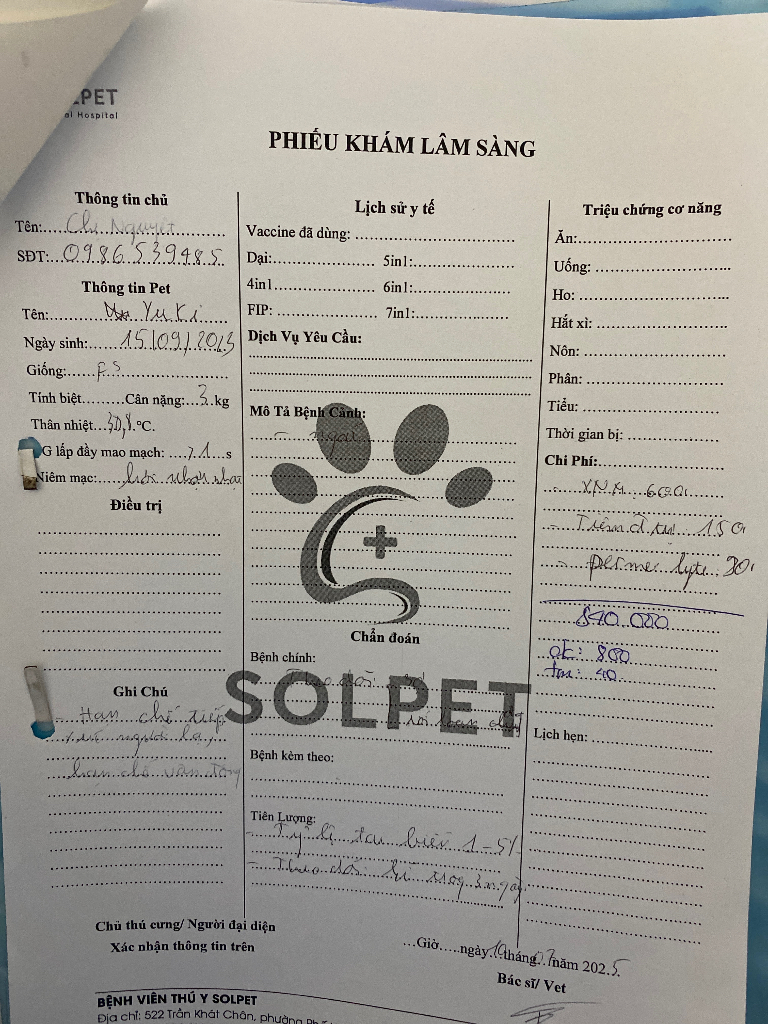 LPET
al Hospital
PHIẾU KHÁM LÂM SÀNG
Thông tin chủ
Tên:.....Chị Nguyệt
SĐT:...0986539485
Thông tin Pet
Tên:..........Yuki
Ngày sinh:......15/09/2023
Giống:.....
Tính biệt.........Cân nặng:..3..kg
Thân nhiệt...°C.
G lấp đầy mao mạch: ....>1....s
Niêm mạc:.....
Điều trị
Ghi Chú
- Hạn chế tiếp
xúc người lạ,
hạn chế vận động
Lịch sử y tế
Vaccine đã dùng:
Dại:.......................... 5in1:
4in1.......................... 6in1:
FIP:.......................... 7in1:
Dịch Vụ Yêu Cầu:
Mô Tả Bệnh Cảnh:
Chẩn đoán
Bệnh chính:
Theo dõi
rối loạn
SOLPET
Bệnh kèm theo:
Tiên Lượng:
- Tỷ lệ tai biến 1-5%
- Theo dõi 3 ngày
Triệu chứng cơ năng
Ăn:
Uống:
Ho:
Hắt xì:
Nôn:
Phân:
Tiểu:
Thời gian bị:
Chi Phí:
- XNM 600
- Tiêm đ.trị 150
- permec lyte 90
840.000
ck: 800
tm: 40
Lịch hẹn:
Chủ thú cưng/ Người đại diện
Xác nhận thông tin trên
...Giờ.....ngày 10 tháng 07 năm 2025
Bác sĩ/ Vet
BỆNH VIÊN THÚ Y SOLPET
Địa chỉ: 522 Trần Khát Chân, phường